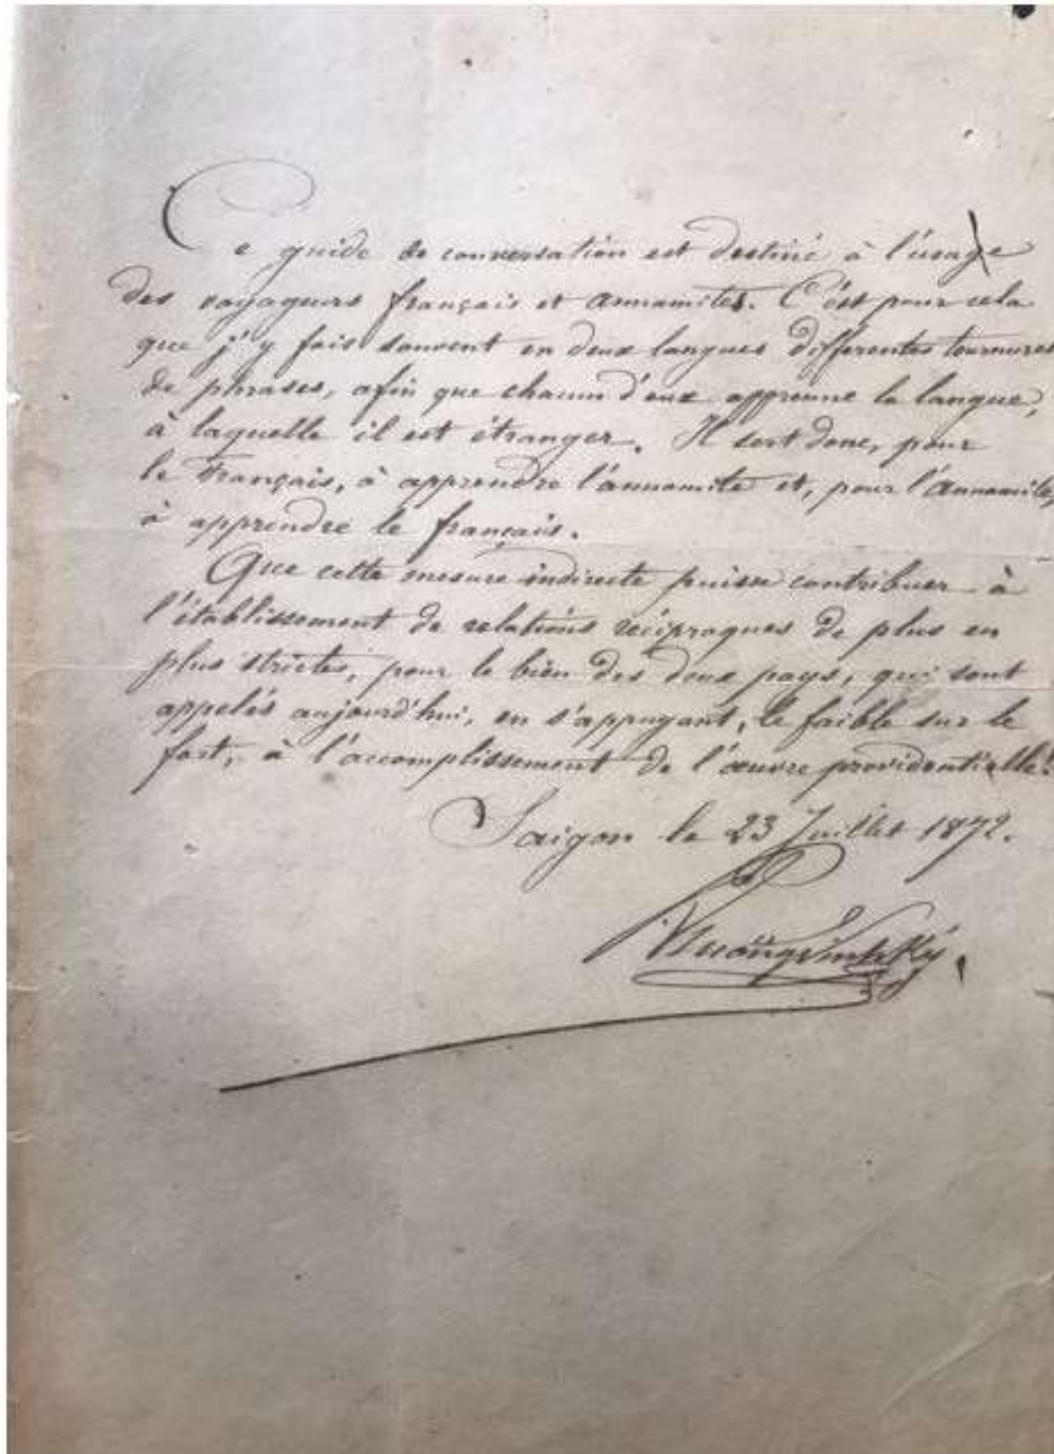 Ce guide de conversation est destiné à l'usage
des voyageurs français et annamites. C'est pour cela
que j'y fais souvent en deux langues differentes tournures
de phrases, afin que chacun d'eux apprenne la langue,
à laquelle il est étranger. Il sert donc, pour
le Français, à apprendre l'annamite et, pour l'Annamite,
à apprendre le français.
Que cette mesure indirecte puisse contribuer à
l'établissement de relations réciproques de plus en
plus strictes, pour le bien des deux pays, qui sont
appelés aujourd'hui, en s'appuyant, le faible sur le
fort, à l'accomplissement de l'œuvre providentielle!
Saigon le 23 Juillet 1872.
Trương Vĩnh Ký.